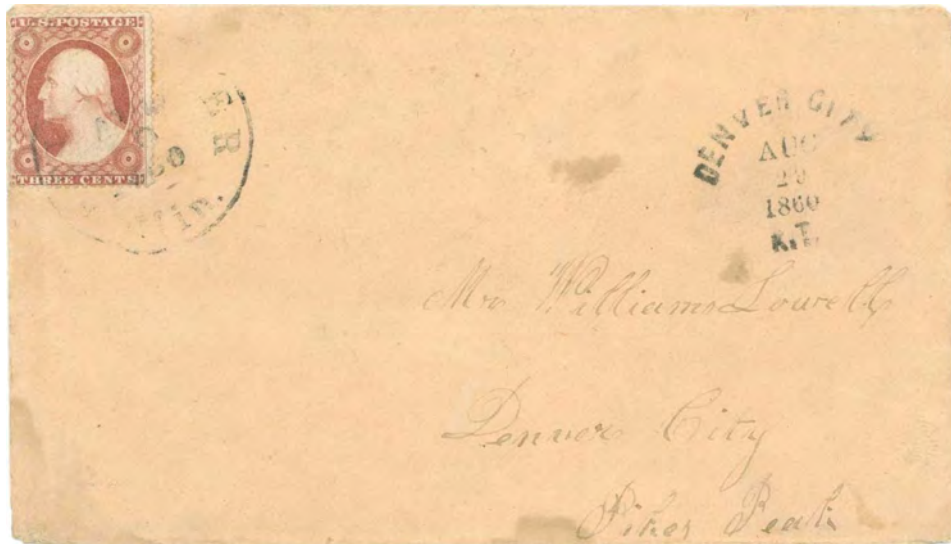 U.S. POSTAGE
THREE CENTS
60
Wis.
DENVER CITY
AUG
29
1860
K.T.
Mr William Lowell
Denver City
Pikes Peak